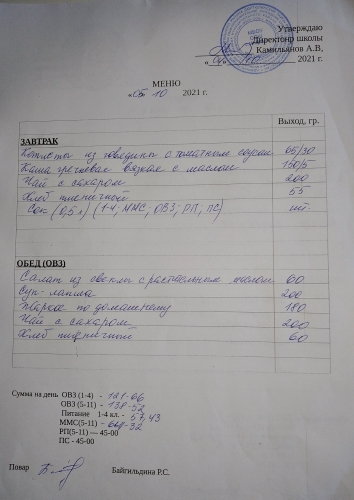 Утверждаю
Директор школы
Камильянов А.В,
2021 г.
МЕНЮ
«05» 10 2021 г.
Выход, гр.
ЗАВТРАК
Котлеты из говядины с томатным соусом 65/30
Каша гречневая вязкая с маслом 150/5
Чай с сахаром 200
Хлеб пшеничный 55
Сок (0,5 л) (1-4, ММС, ОВЗ, РП, ПС) шт.
ОБЕД (ОВЗ)
Салат из свеклы с растительным маслом 60
Суп-лапша 200
Жаркое по домашнему 180
Чай с сахаром 200
Хлеб пшеничный 60
Сумма на день ОВЗ (1-4) - 121-66
ОВЗ (5-11) - 138-52
Питание 1-4 кл. - 57,43
ММС(5-11) - 32
РП(5-11) — 45-00
ПС - 45-00
Повар Байгильдина Р.С.